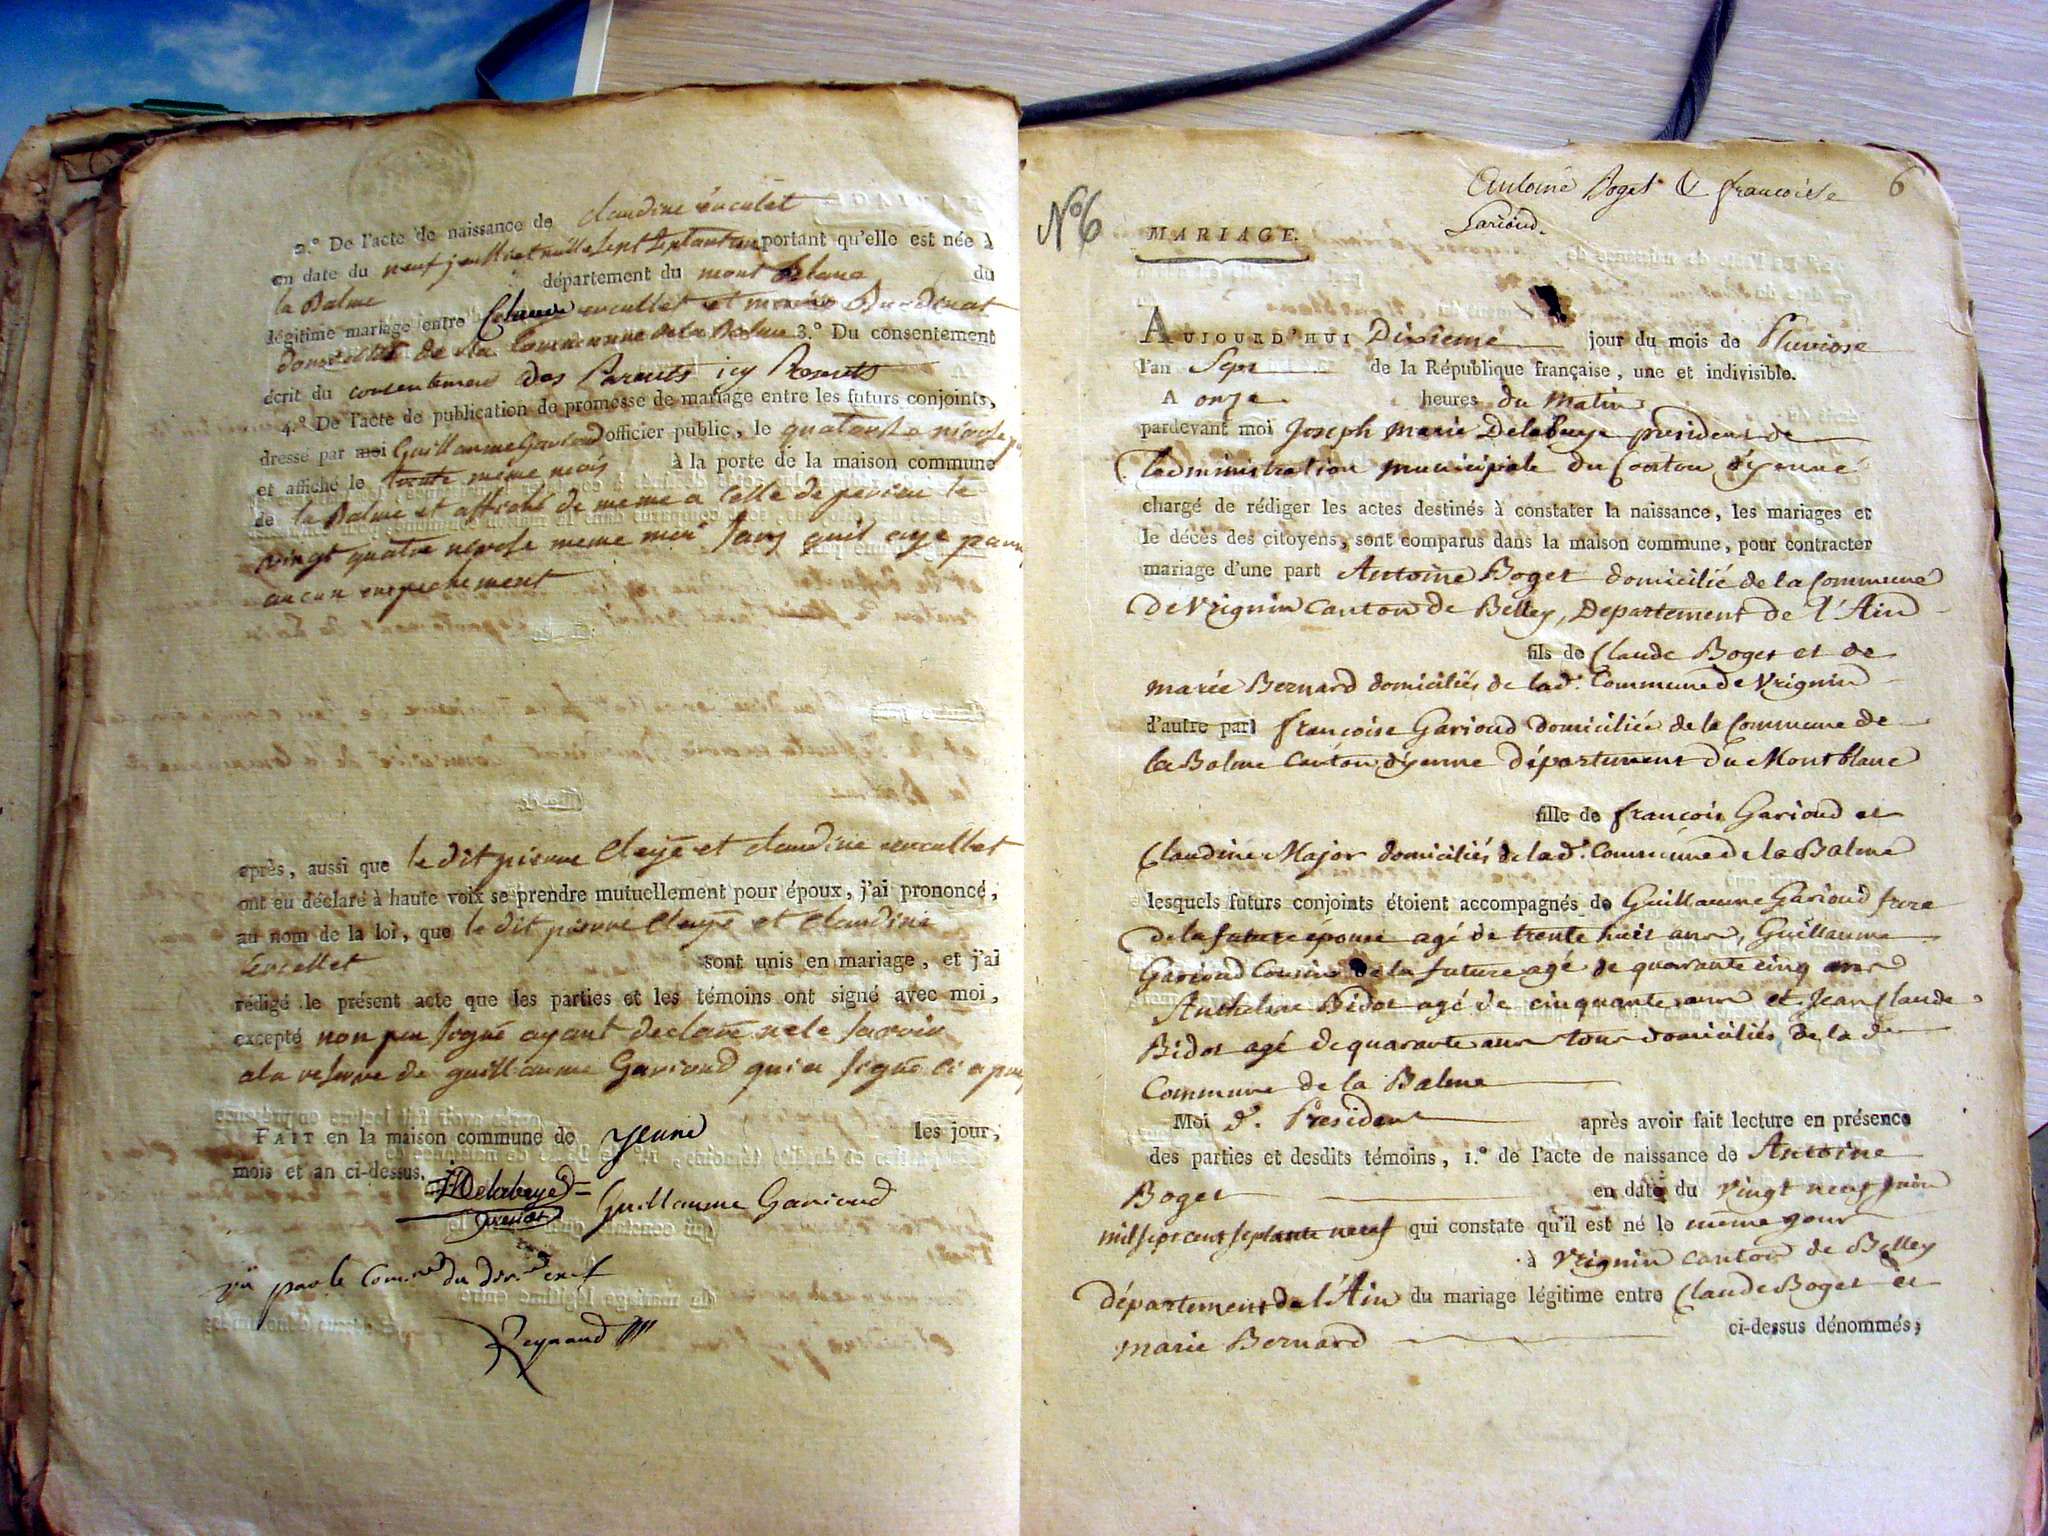 2.° De l'acte de naissance de claudine
en date du neuf juillet mille sept septante portant qu'elle est née à
la Balme département du mont blanc du
légitime mariage entre Claude et
domicilies de la Commune de la Balme 3.° Du consentement
écrit du consentement des Parents icy Presents
4.° De l'acte de publication de promesse de mariage entre les futurs conjoints,
dressé par moi Guillaume Garioud officier public, le quatorse nivose
et affiché le trente même mois à la porte de la maison commune
de la Balme et affiché de meme a Celle de le
vingt quatre nivose meme moi sans quil aye
aucun empechement
après, aussi que le dit pierre Cleyé et claudine
ont eu déclaré à haute voix se prendre mutuellement pour époux, j'ai prononcé,
au nom de la loi, que le dit pierre Cleyé et Claudine
sont unis en mariage, et j'ai
rédigé le présent acte que les parties et les témoins ont signé avec moi,
excepté non peu signé ayant declaré ne le savoir
a la reserve de guillaume Garioud qui a signé
FAIT en la maison commune de yenne les jour,
mois et an ci-dessus.
Delabeye Guillaume Garioud
vü par le du
Reynaud
Antoine Boget & francoise 6
Garioud.
N° 6
MARIAGE.
AUJOURD'HUI Dixieme jour du mois de Pluviose
l'an Sept de la République française, une et indivisible.
A onze heures du Matin
pardevant moi Joseph Marie Delabeye president de
ladministration municipale du Canton d'yenne
chargé de rédiger les actes destinés à constater la naissance, les mariages et
le décès des citoyens, sont comparus dans la maison commune, pour contracter
mariage d'une part Antoine Boget domicilié de la Commune
de Vrignin Canton de Belley, Departement de l'Ain
fils de Claude Boget et de
marie Bernard domiciliés de lad. Commune de Vrignin
d'autre part françoise Gariod domiciliée de la Commune de
la Balme Canton d'yenne département du Montblanc
fille de françois Gariod et
Claudine Major domiciliés de lad. Commune de la Balme
lesquels futurs conjoints étoient accompagnés de Guillaume Gariod frere
de la future epouse agé de trente huit ans, Guillaume
Gariod Cousin de la future agé de quarante cinq ans
Anthelme Bidot agé de cinquante ans et Jean Claude
Bidot agé de quarante ans tous domiciliés de la d.
Commune de la Balme
Moi d. President après avoir fait lecture en présence
des parties et desdits témoins, 1.° de l'acte de naissance de Antoine
Boget en date du vingt neuf juin
mil sept cent septante neuf qui constate qu'il est né le meme jour
à Vrignin canton de Belley
département de l'Ain du mariage légitime entre Claude Boget et
marie Bernard ci-dessus dénommés;